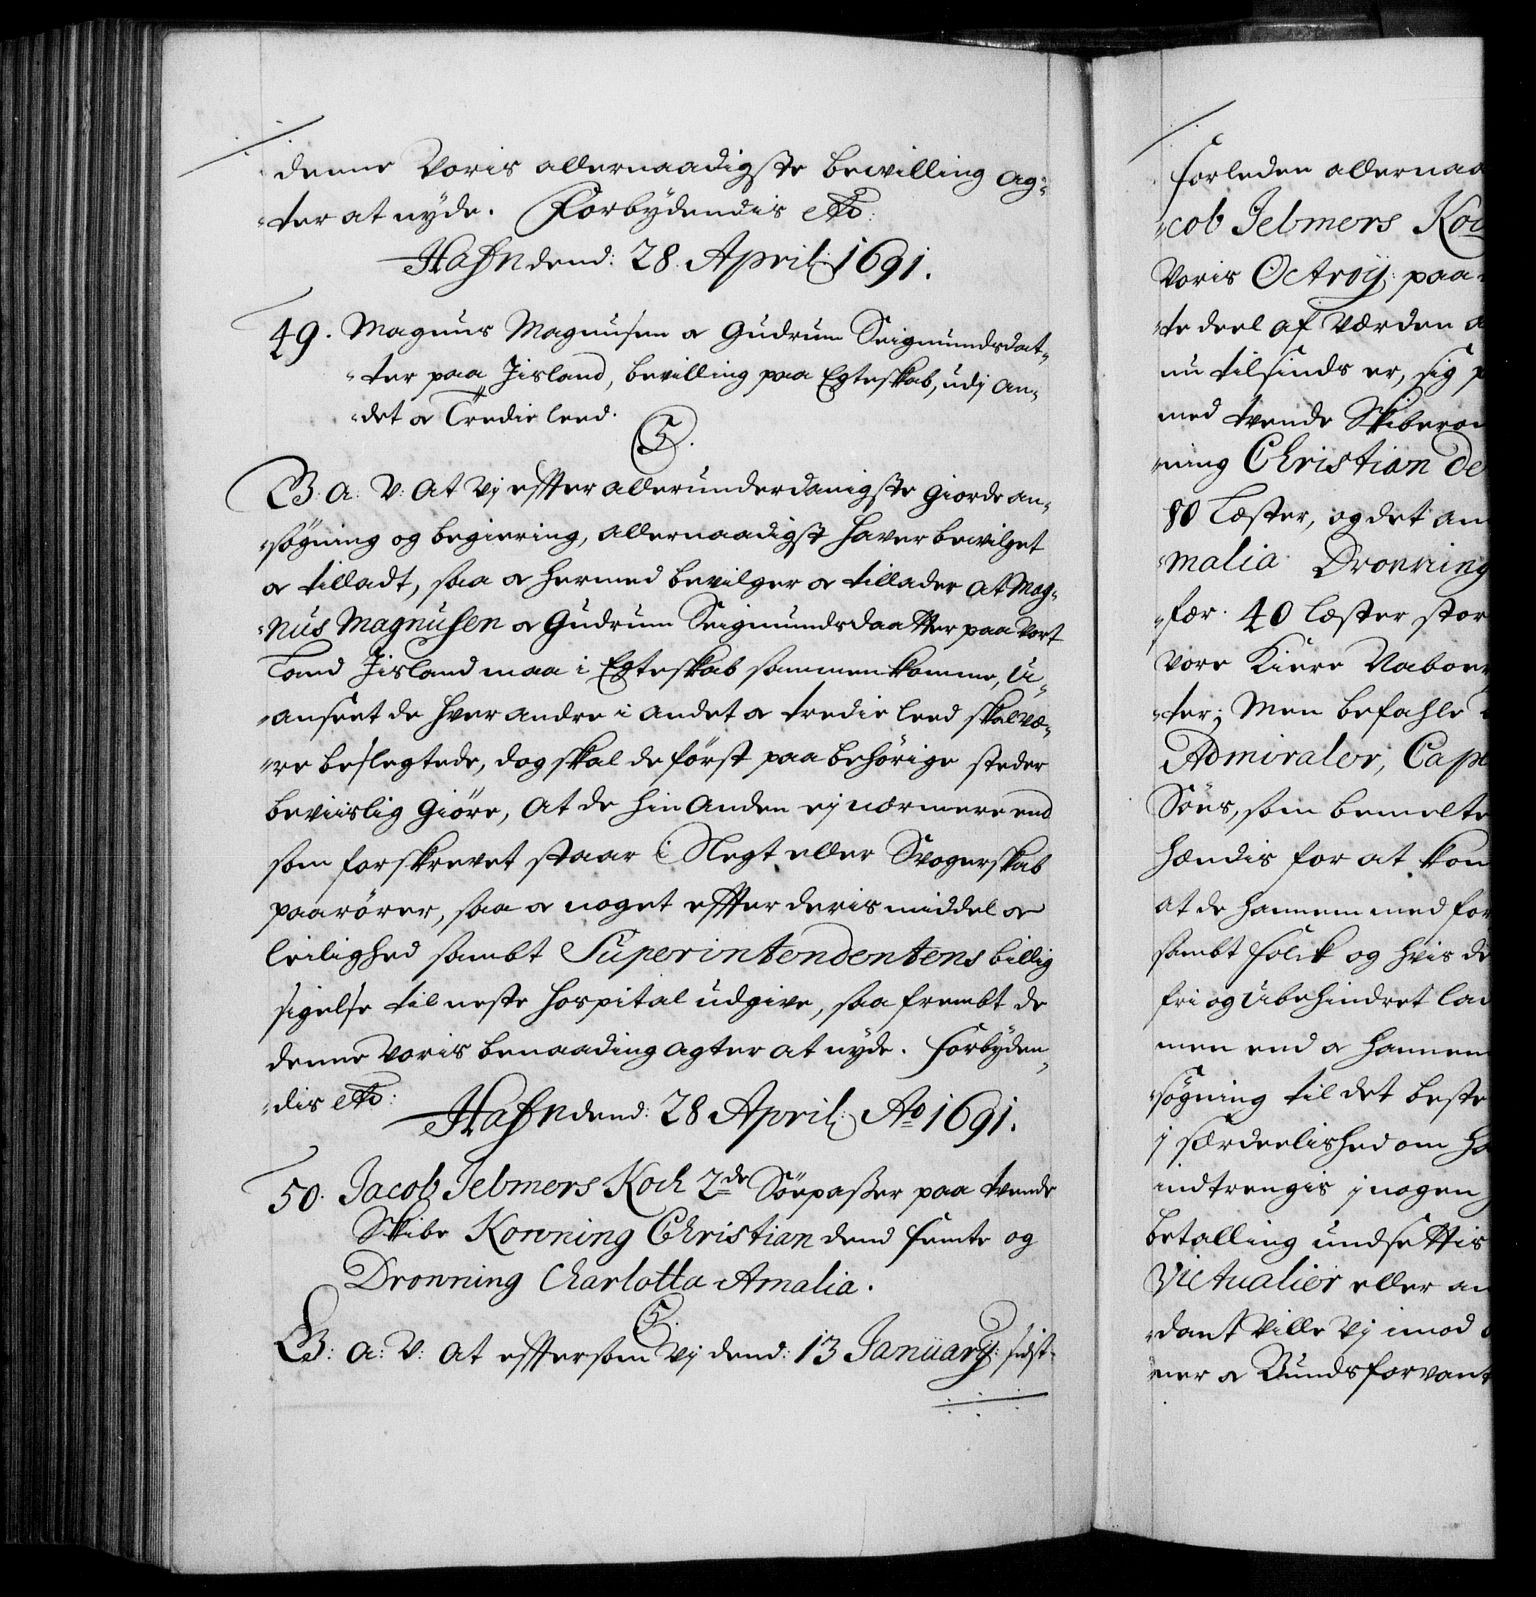 denne Voris allernaadigste bevilling ag¬
ter at nyde. Forbydendis etc:
Hafn dend: 28. April: 1691.
49. Magnus Magnusen og Gudrum Seigmundsdat¬
ter paa Jisland, bevilling paa Egteskab, udj an¬
det og Tredie leed.
C5.
G: A: V: At Vj effter allerunderdanigste giorde an¬
søgning og begiering, allernaadigst haver bevilget
og tilladt, saa og hermed bevilger og tillader at Mag¬
nus Magnusen og Gudrum Seigmundsdaatter paa Vort
Land Jisland maa i Egteskab sammenkomme, U¬
anseet de hver andre i andet og tredie leed skal væ¬
re beslegtede, dog skal de først paa behørige steder
beviislig giøre, at de hin anden ej nærmere end
som forskrevet staar i Slegt eller Svogerskab
paarører, saa og noget effter deris middel og
leilighed sambt Superintendentens billig
sigelse til neste hospital udgive, saa frembt de
denne voris benaading agter at nyde. Forbyden¬
dis etc:
Hafn dend: 28 April: Ao 1691.
50. Jacob Jelmers Koch 2de Søepasser paa tvende
Skibe Konning Christian dend femte og
Dronning Charlotta Amalia.
C5.
G: A: V: At efftersom Vj dend: 13 January: sidst¬
forleden allernaa
cob Jelmers Koc
Voris Octroy: paa
te deel af Værden
nu tilsinds er, sig
med tvende Skibe
ning Christian de
80 Læster, og det an
malia Dronning
fær. 40 læster stor
vore Kiere Naboer
ter; Men befahle
Admiraler, Cap
Søes, som bemelte
hændis for at kom
at de hannem med for
sambt folck og hvis de
fri og ubehindret la
men end og hannem
søgning til det beste
j særdeelished om ha
indtrengis j nogen
betalling undsettis
Victualier eller an
dant ville Vj imod
ner og Bundsforvant